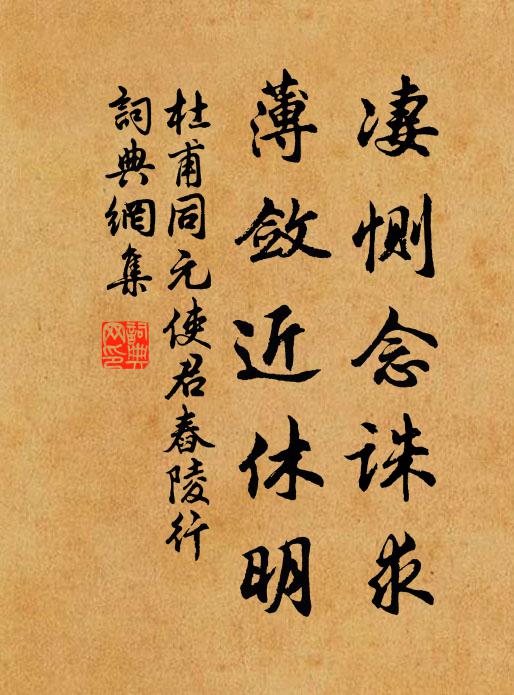 凄惻念誅求
薄斂近休明
杜甫同元使君舂陵行
詞典網集
詞典
网印